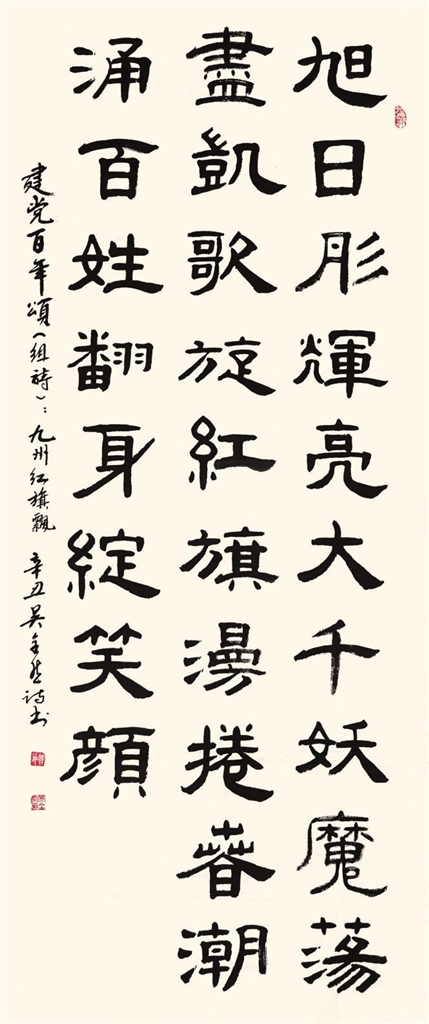 旭日彤輝亮大千妖魔蕩
盡凱歌旋紅旗漫捲春潮
涌百姓翻身綻笑顔
建党百年頌（组詩）：九州红旗飄 辛丑吴全诗书